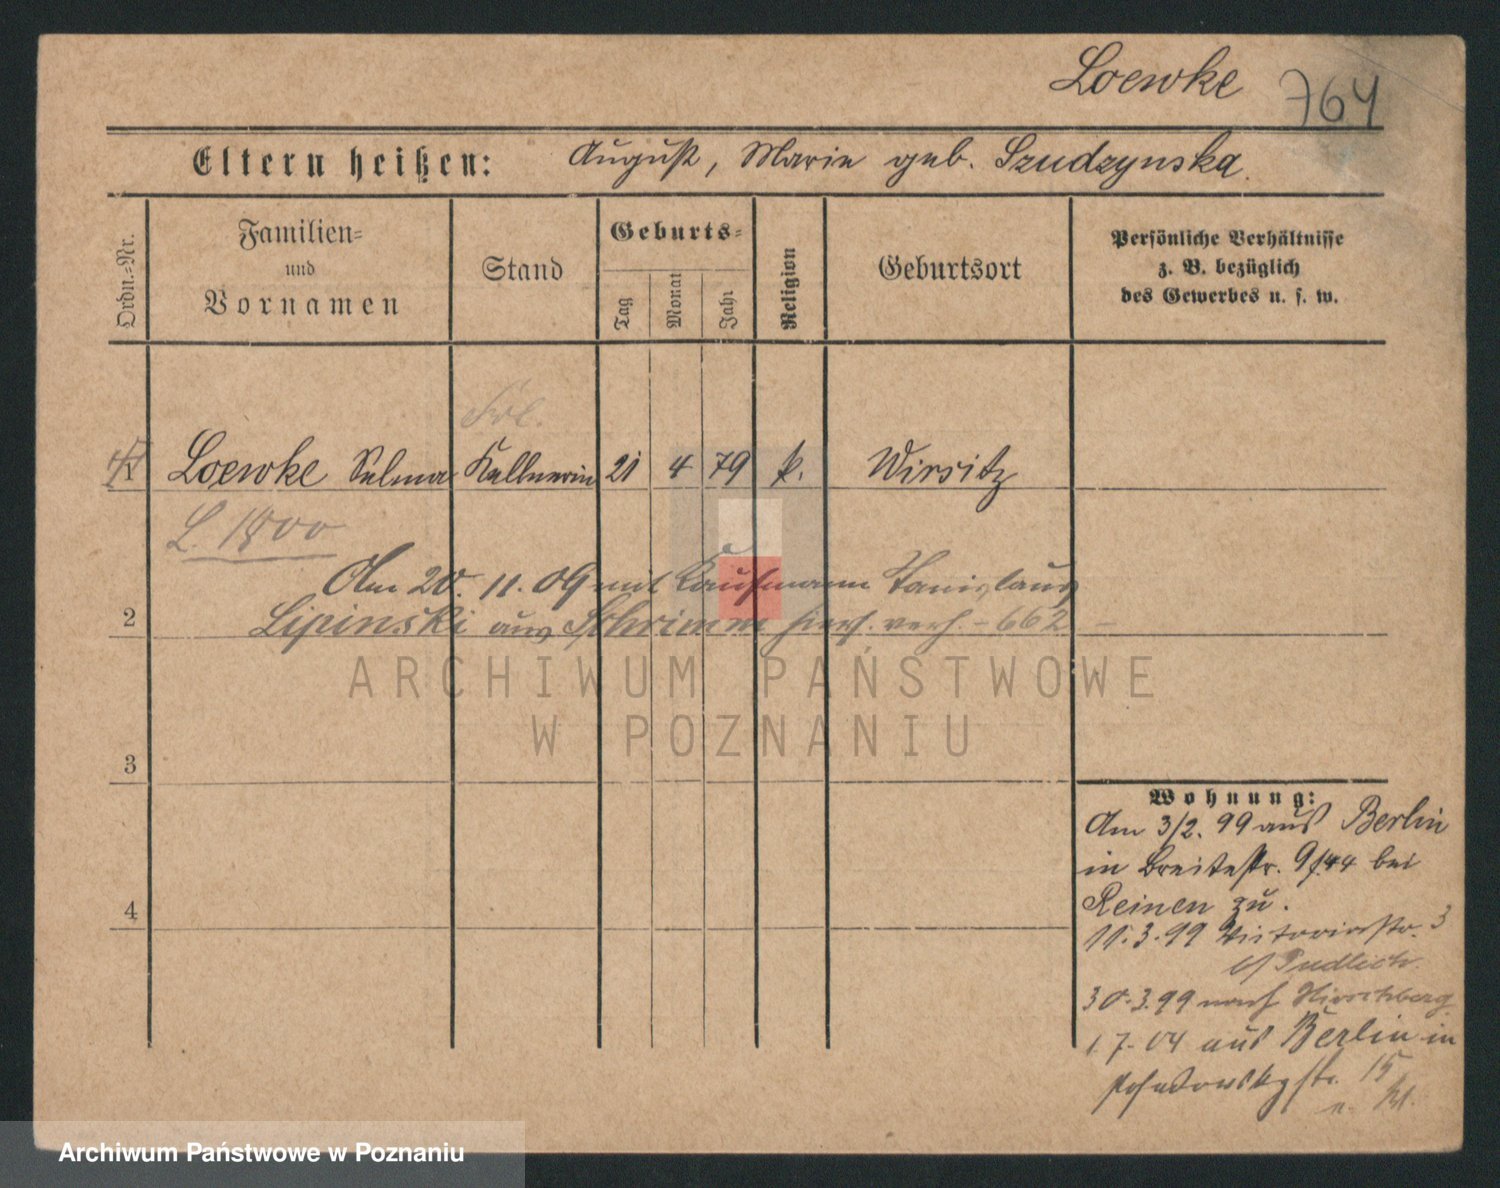 Loewke 764
Eltern heißen: August, Marie geb. Szudzynska.
Ordn.-Nr.
Familien-
und
Vornamen
Stand
Geburts-
Tag
Monat
Jahr
Religion
Geburtsort
Persönliche Verhältnisse
z. B. bezüglich
des Gewerbes u. s. w.
Frl.
1 Loewke Selma Kellnerin 21 4 79 k. Wirsitz
L. 1800
Am 20. 11. 09 mit Kaufmann Stanislaus
2 Lipinski aus Schrimm hier verh. - 662 -
ARCHIWUM PAŃSTWOWE
W POZNANIU
3
4
Wohnung:
Am 3/2. 99 aus Berlin
in Breitestr. 9 bei
Reinen zu.
11.3.99 Victoriastr. 3
b/ Pudlich.
30.3.99 nach Hirschberg
1.7.04 aus Berlin in
15
Archiwum Państwowe w Poznaniu